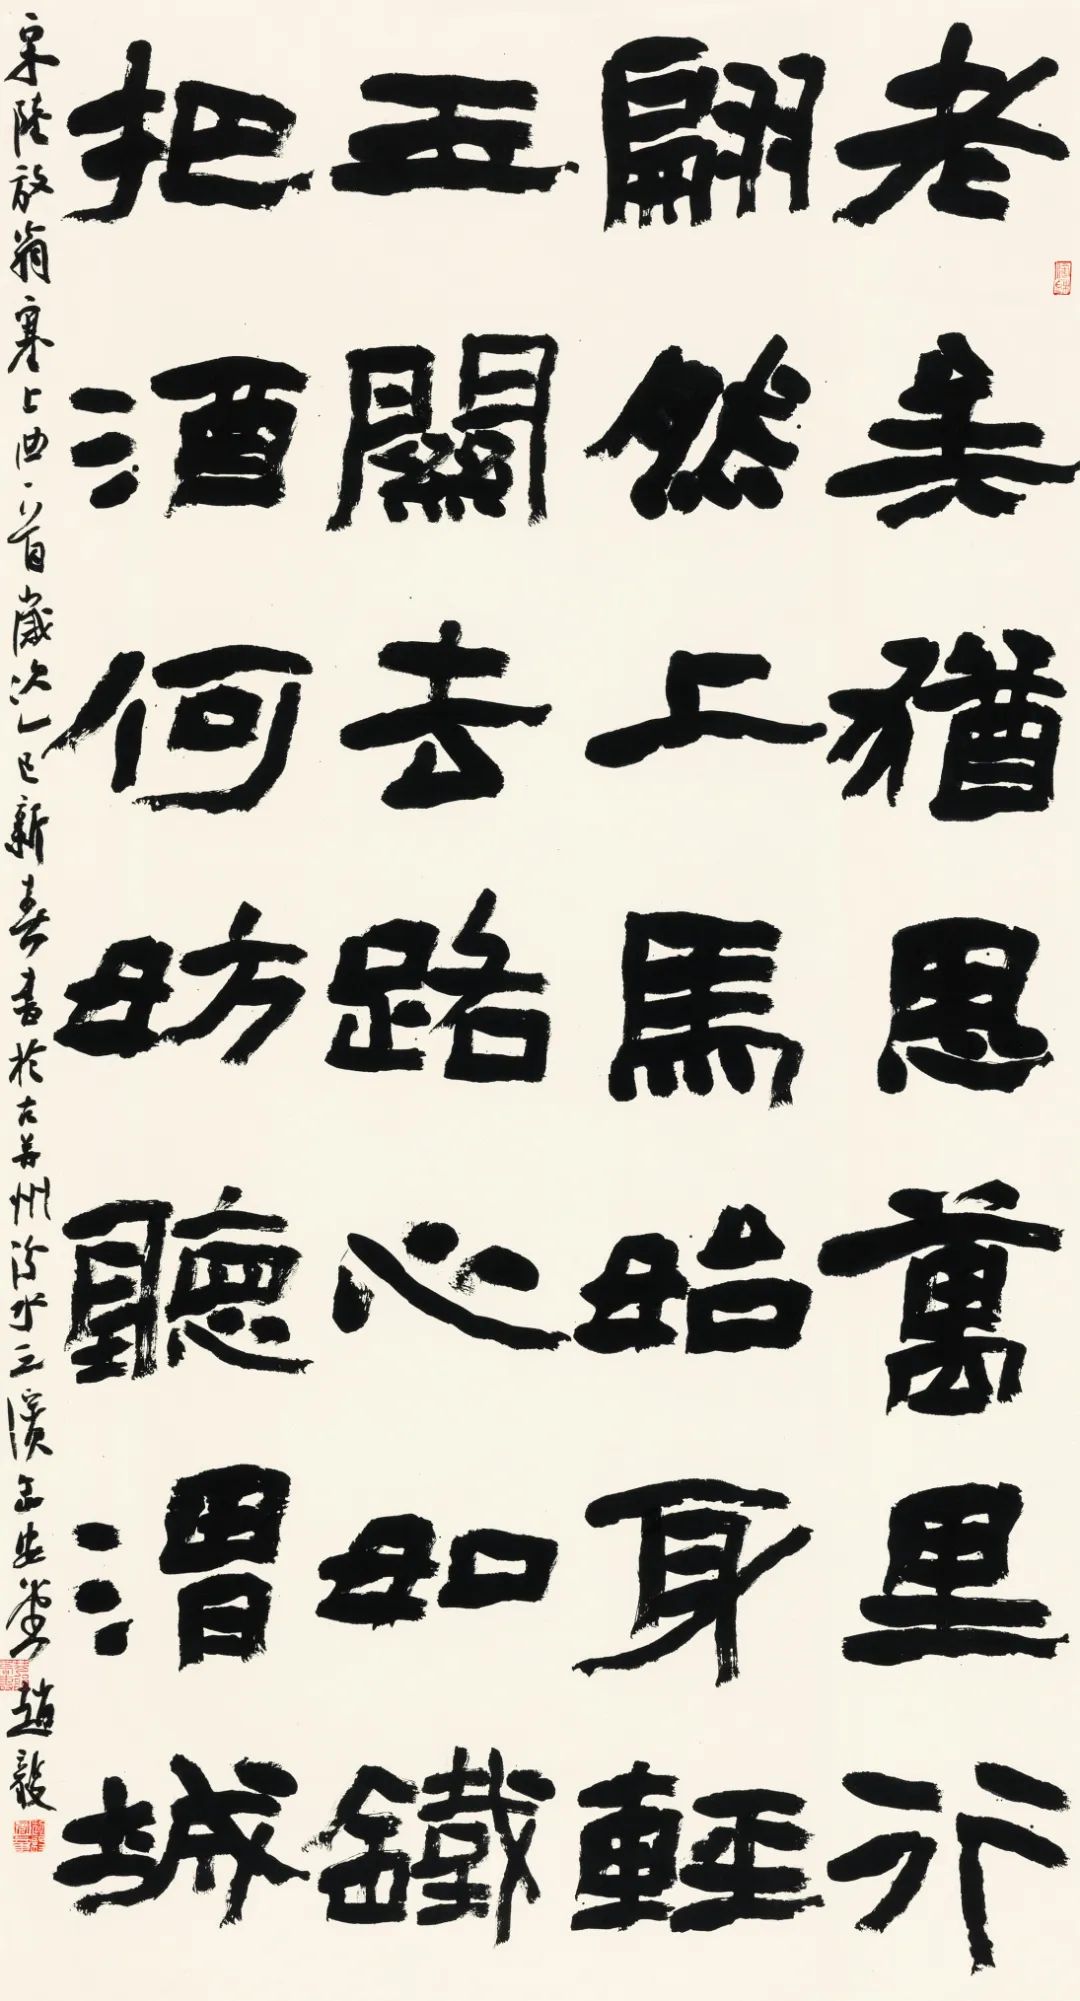 老矣猶思萬里行
翩然上馬始身輕
玉關去路心如鐵
把酒何妨聽渭城
宋陸放翁塞上曲一首歲次乙巳新春書於古并州汾水三濱趙毅